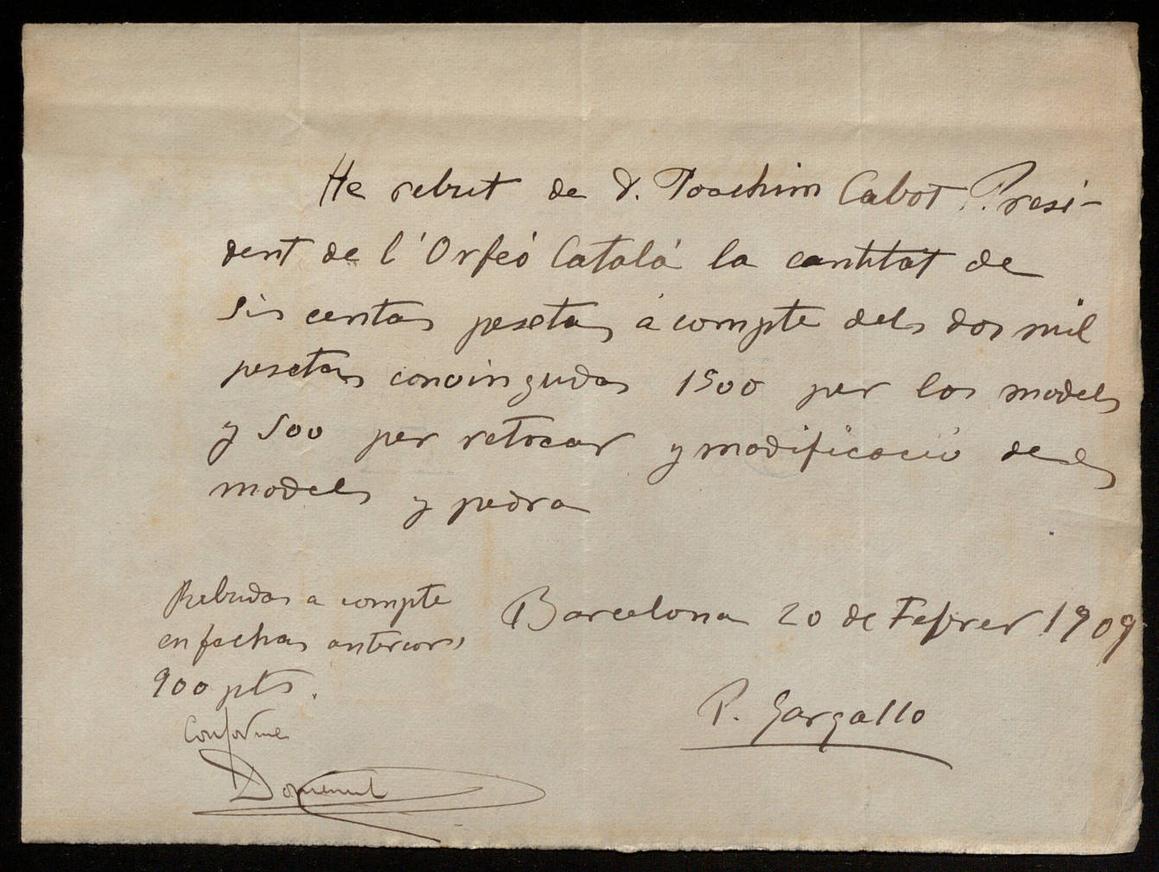 He rebut de D. Joachim Cabot Presi-
dent de l'Orfeó Catalá la cantitat de
sis centas pesetas á compte dels dos mil
pesetas convingudas 1500 per los models
y 500 per retocar y modificació dels
models y pedra
Rebudas a compte
en fechas anteriors
900 pts.
Conforme
Domenech
Barcelona 20 de Febrer 1909
P. Gargallo